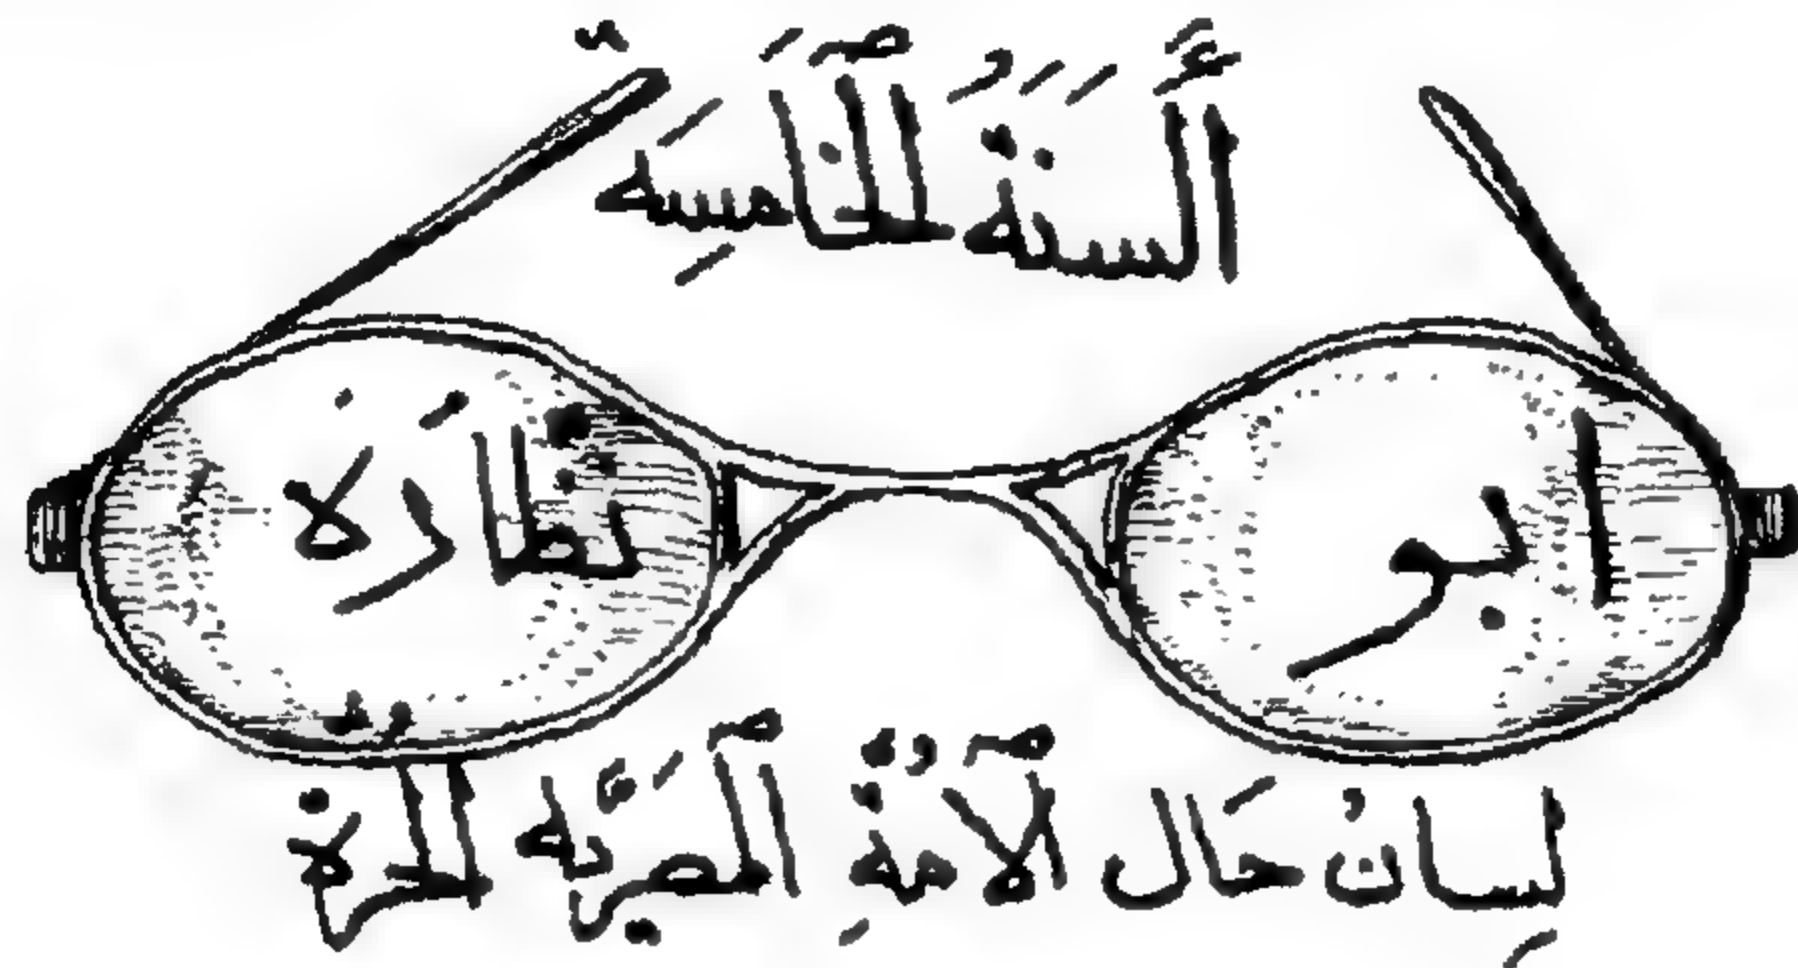 أَلسَنَةُ الخَامِسَة
ابو نظَارَة
لِسانُ حَال الأمةِ المصريَّة الحرة